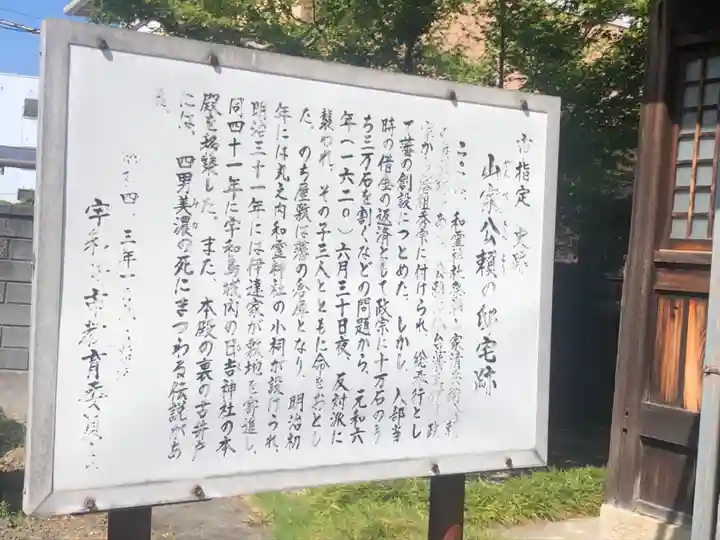 市指定 史跡
山家公頼の邸宅跡
ここは、和霊神社祭神山家清兵衛公頼
から藩祖秀宗に付けられ、総奉行とし
て藩の創設につとめた。しかし、入部当
時の借金の返済として政宗に十万石のう
ち三万石を割くなどの問題から、元和六
年(一六二〇)六月三十日夜、反対派に
襲われ、その子三人とともに命をおとし
た。のち屋敷は藩の倉庫となり、明治初
年には丸之内和霊神社の小祠が設けられ、
明治三十一年には伊達家が敷地を寄進し、
同四十一年に宇和島城内の日吉神社の本
殿を移築した。また、本殿の裏の古井戸
には、四男美濃の死にまつわる伝説があ
る。
宇和島市教育委員会